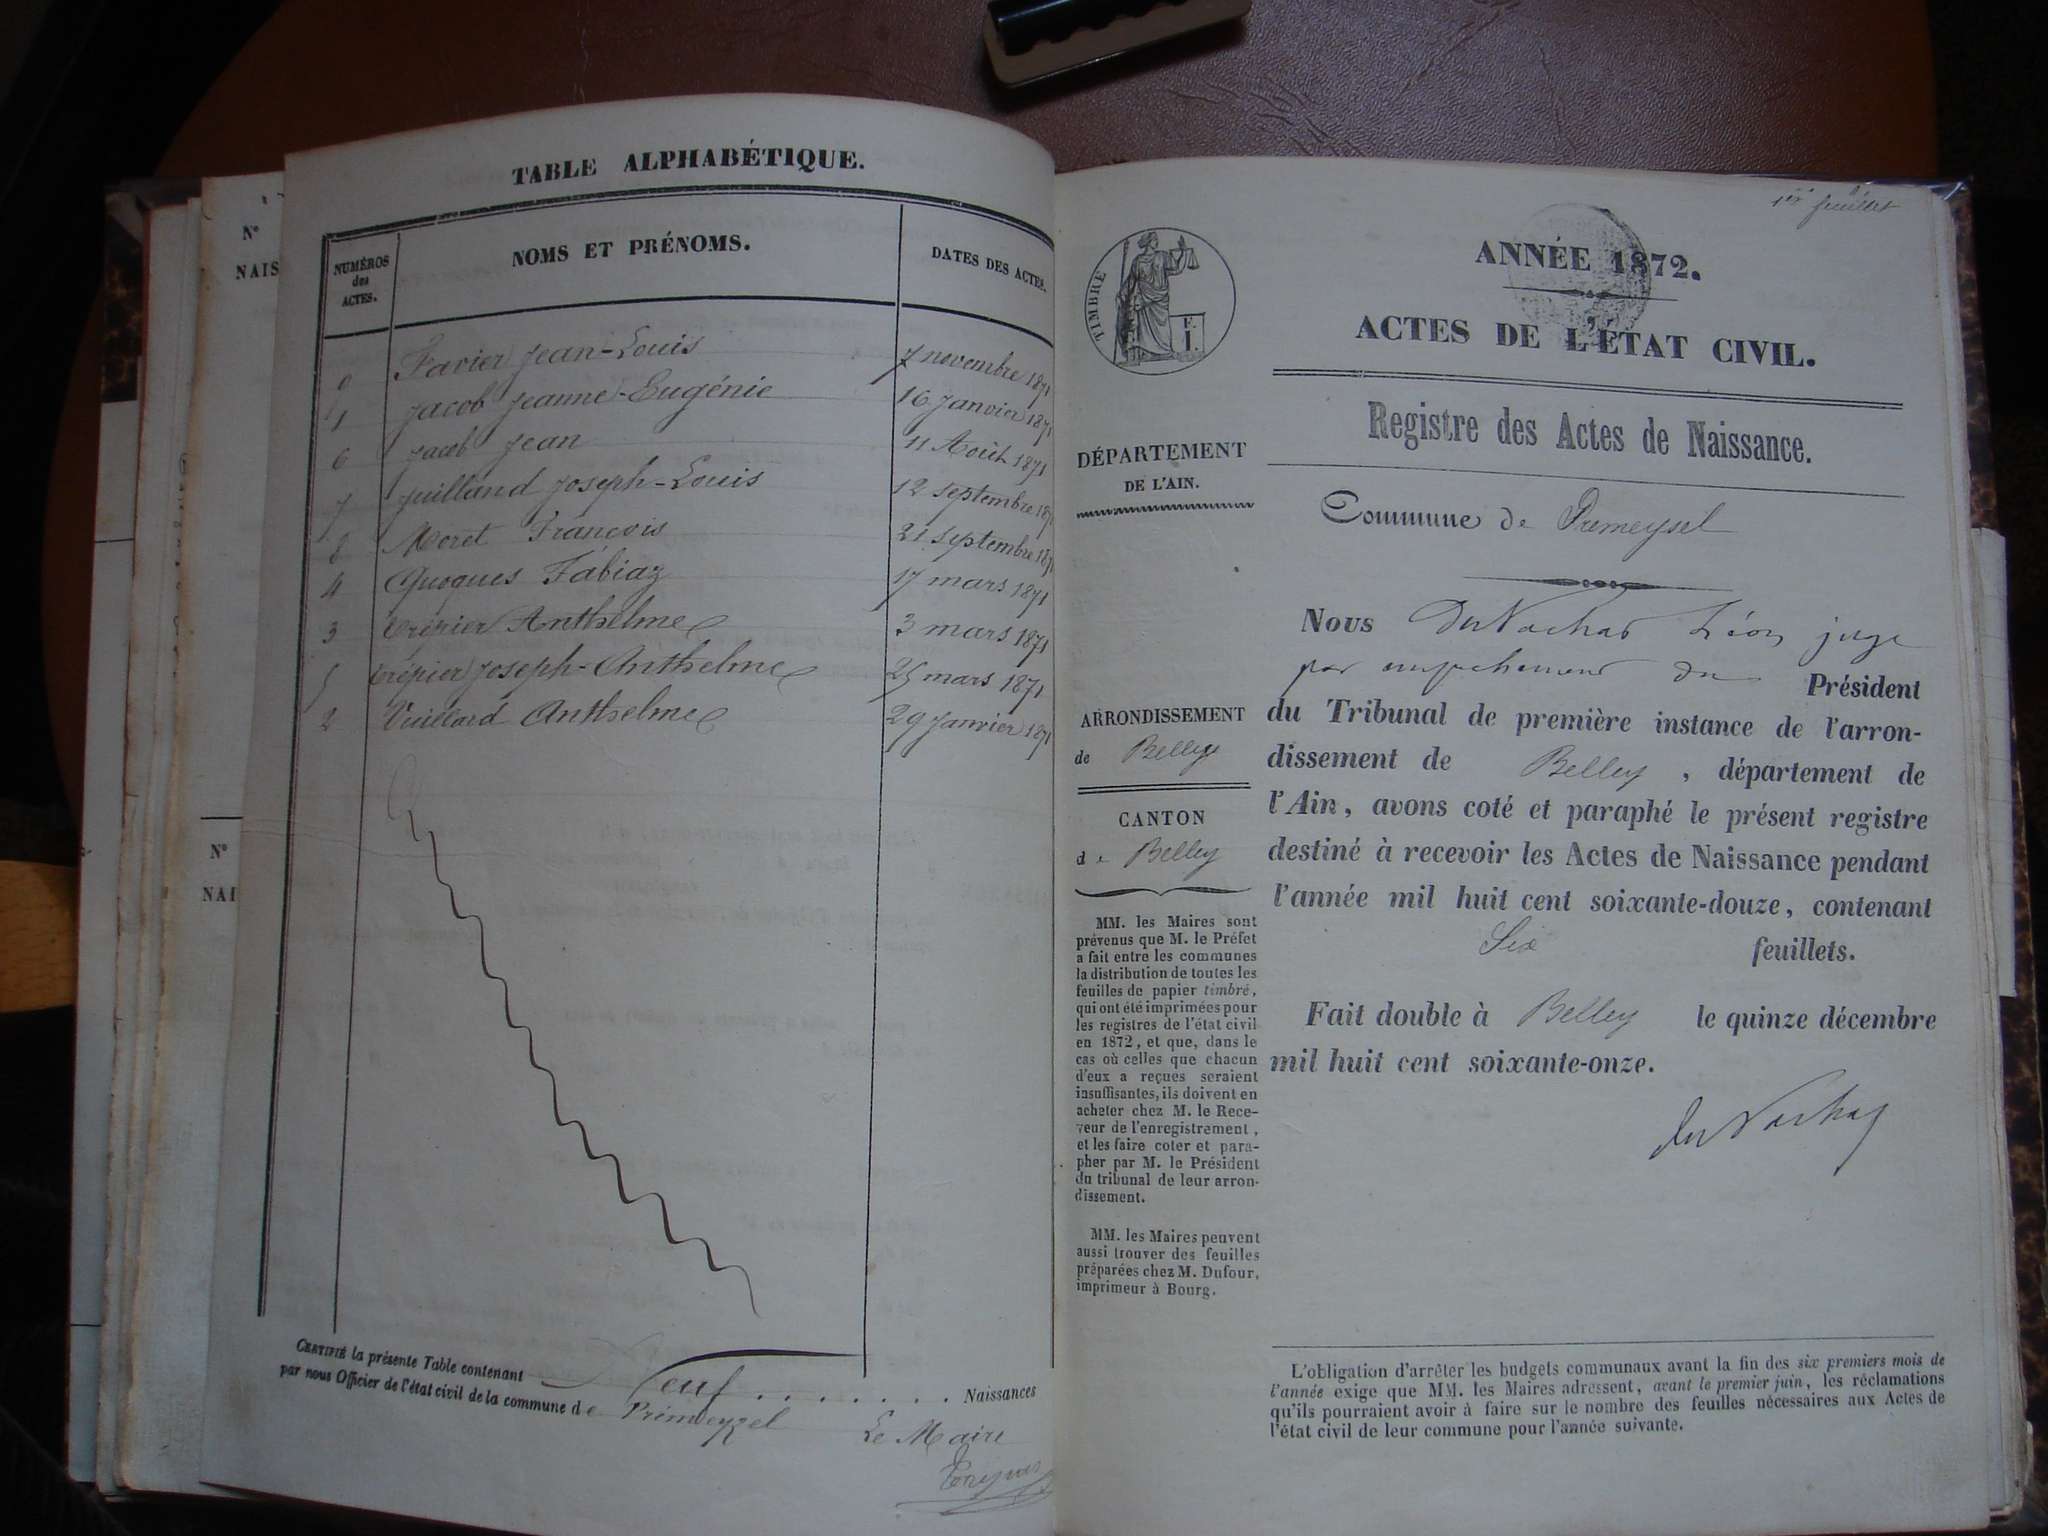 N°
NAIS
N°
NAI
TABLE ALPHABÉTIQUE.
NUMÉROS
des
ACTES.
NOMS ET PRÉNOMS.
DATES DES ACTES.
9 Favier Jean-Louis 7 novembre 1871
1 Jacob Jeanne-Eugénie 16 Janvier 1871
6 Jacob Jean 11 Août 1871
7 Juilland Joseph-Louis 12 septembre 1871
8 Moret François 21 septembre 1871
4 Quoques 17 mars 1871
3 Trépier Anthelme 3 mars 1871
5 Trépier Joseph-Anthelme 25 mars 1871
2 Vuillard Anthelme 29 Janvier 1871
CERTIFIÉ la présente Table contenant Neuf . . . . . . . Naissances
par nous Officier de l'état civil de la commune de Prémeyzel
Le Maire
1er feuillet
TIMBRE
ANNÉE 1872.
ACTES DE L'ÉTAT CIVIL.
Registre des Actes de Naissance.
Commune de Premeysel
DÉPARTEMENT
DE L'AIN.
ARRONDISSEMENT
de Belley
CANTON
de Belley
MM. les Maires sont
prévenus que M. le Préfet
a fait entre les communes
la distribution de toutes les
feuilles de papier timbré,
qui ont été imprimées pour
les registres de l'état civil
en 1872, et que, dans le
cas où celles que chacun
d'eux a reçues seraient
insuffisantes, ils doivent en
acheter chez M. le Rece-
veur de l'enregistrement,
et les faire coter et para-
pher par M. le Président
du tribunal de leur arron-
dissement.
MM. les Maires peuvent
aussi trouver des feuilles
préparées chez M. Dufour,
imprimeur à Bourg.
Nous DuVachat Léon juge
par empechement du Président
du Tribunal de première instance de l'arron-
dissement de Belley, département de
l'Ain, avons coté et paraphé le présent registre
destiné à recevoir les Actes de Naissance pendant
l'année mil huit cent soixante-douze, contenant
Six feuillets.
Fait double à Belley le quinze décembre
mil huit cent soixante-onze.
DuVachat
L'obligation d'arrêter les budgets communaux avant la fin des six premiers mois de
l'année exige que MM. les Maires adressent, avant le premier juin, les réclamations
qu'ils pourraient avoir à faire sur le nombre des feuilles nécessaires aux Actes de
l'état civil de leur commune pour l'année suivante.